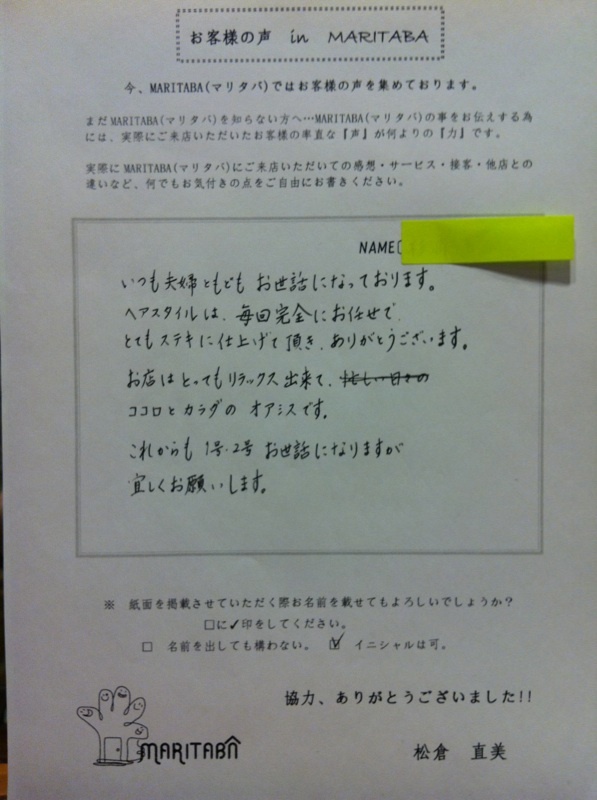 お客様の声 in MARITABA
今、MARITABA(マリタバ)ではお客様の声を集めております。
まだMARITABA(マリタバ)を知らない方へ…MARITABA(マリタバ)の事をお伝えする為
には、実際にご来店いただいたお客様の率直な『声』が何よりの『力』です。
実際にMARITABA(マリタバ)にご来店いただいての感想・サービス・接客・他店との
違いなど、何でもお気付きの点をご自由にお書きください。
NAME[
いつも夫婦ともども お世話になっております。
ヘアスタイルは、毎回完全にお任せで、
とてもステキに仕上げて頂き、ありがとうございます。
お店はとってもリラックス出来て、忙しい日々の
ココロとカラダの オアシスです。
これからも 1号・2号 お世話になりますが
宜しくお願いします。
※ 紙面を掲載させていただく際お名前を載せてもよろしいでしょうか?
□に✓印をしてください。
□ 名前を出しても構わない。 ☑ イニシャルは可。
協力、ありがとうございました!!
MARITABA
松倉 直美